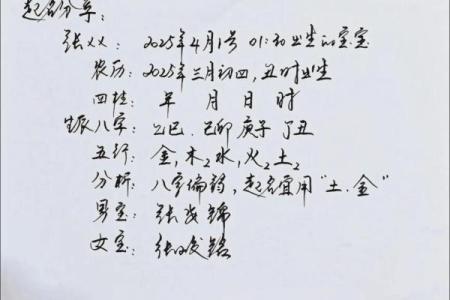 起名分享:
张××: 2025年4月1号 01:30出生的宝宝
农历: 2025年三月初四,丑时出生
四柱: 年 月 日 时
生辰八字: 乙巳、己卯 庚子 丁丑
五行: 金,木2水,火2土2
分析: 八字偏弱,起名宜用“土、金”
男宝: 张 锦
女宝: 张 铭